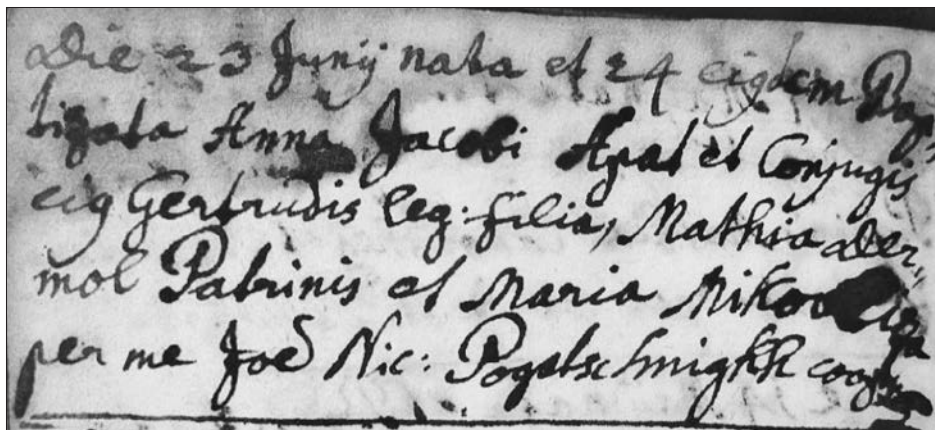 Die 23 Junij nata et 24 eigdem Bap,
tizata Anna Jacobi Apat et Conjugis
eig Gertrudis leg. filia, Mathia Der,,
mol Patrinis et Maria
per me Joē Nic: Pogatschnigkh